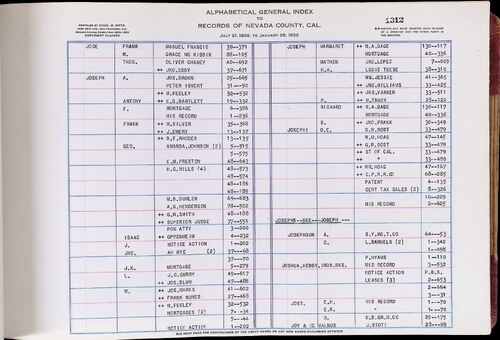 ALPHABETICAL GENERAL INDEX
TO
RECORDS OF NEVADA COUNTY, CAL.
1312
JOSE FRANK MANUEL FRANCIS 39—371
M. GRACE HG KISSIN 88—105
THOS. OLIVER CHANEY 40—692
++ JNO.EDDY 37—671
JOSEPH A. JOS.BROWN 25—665
PETER ISWERT 31—90
++ M.FEELEY 38—532
ANTONY ++ E.G.BARTLETT 19—332
F. MORTGAGE 4—386
HIS RECORD 1—236
FRANK ++ M.SILVER 35—368
++ J.EMERY 13—137
++ R.F.RHODES 13—135
GEO. AMANDA JOHNSON (2) 5—515
5—575
E.M.PRESTON 48—643
H.G.MILLS (4) 48—573
48—574
48—186
48—189
M.B.BUHLER 69—683
A.G.HENDERSON 78—502
++ G.W.SMITH 48—188
++ SUPERIOR JUDGE 77—551
PON ATTY 3—200
ISAAC ++ OPPENHEIM 4—232
J. NOTICE ACTION 1—202
JNO. AH WYE (2) 37—68
37—70
J.R. MORTGAGE 5—279
L. J.C.CURRY 49—617
++ JOS.BLOW 49—488
M. ++ JOS.MARKS 41—602
++ FRANK NUNES 27—468
++ M.FEELEY 32—532
MORTGAGES (2) 7—34
7—44
NOTICE ACTION 1—202
JOSEPH MARGARET ++ N.A.GAGE 130—117
MORTGAGE 40—336
MATHEW JNO.LOPEZ 7—609
M.H. LOUIS TEESE 38—310
WM.JESSIE 41—365
++ JNO.WILLIAMS 33—425
++ JAS.PARKER 33—511
P. ++ M.TRACY 28—122
RICHARD ++ N.A.GAGE 130—117
MORTGAGE 40—336
S. ++ JNO.FRANK 30—349
JOSEPHI D.E. G.R.BOST 33—479
W.M.HOAG 47—145
++ G.R.BOST 33—479
++ ST OF CAL. 33—479
++ 33—480
++ WM.HOAG 47—167
++ C.P.R.R.CO 68—285
PATENT 4—135
CERT TAX SALES (2) 8—326
10—229
HIS RECORD 2—625
JOSEPHS---SEE---JOSEPH---
JOSEPHSON A. B.Y.WG.T.CO 64—53
C. L.SAMUELS (2) 1—342
1—498
P.HYNUS 1—110
JOSHUA,HENDY,IRON,WKS. HIS RECORD 3—532
NOTICE ACTION P.B.S.
LEASES (3) 2—653
2—664
3—31
JOST. E.H. HIS RECORD 1—70
E.R. 1—70
M. N.B.GR.M.CO 25—175
JOY & MC MALNUS J.STOTT 25—89